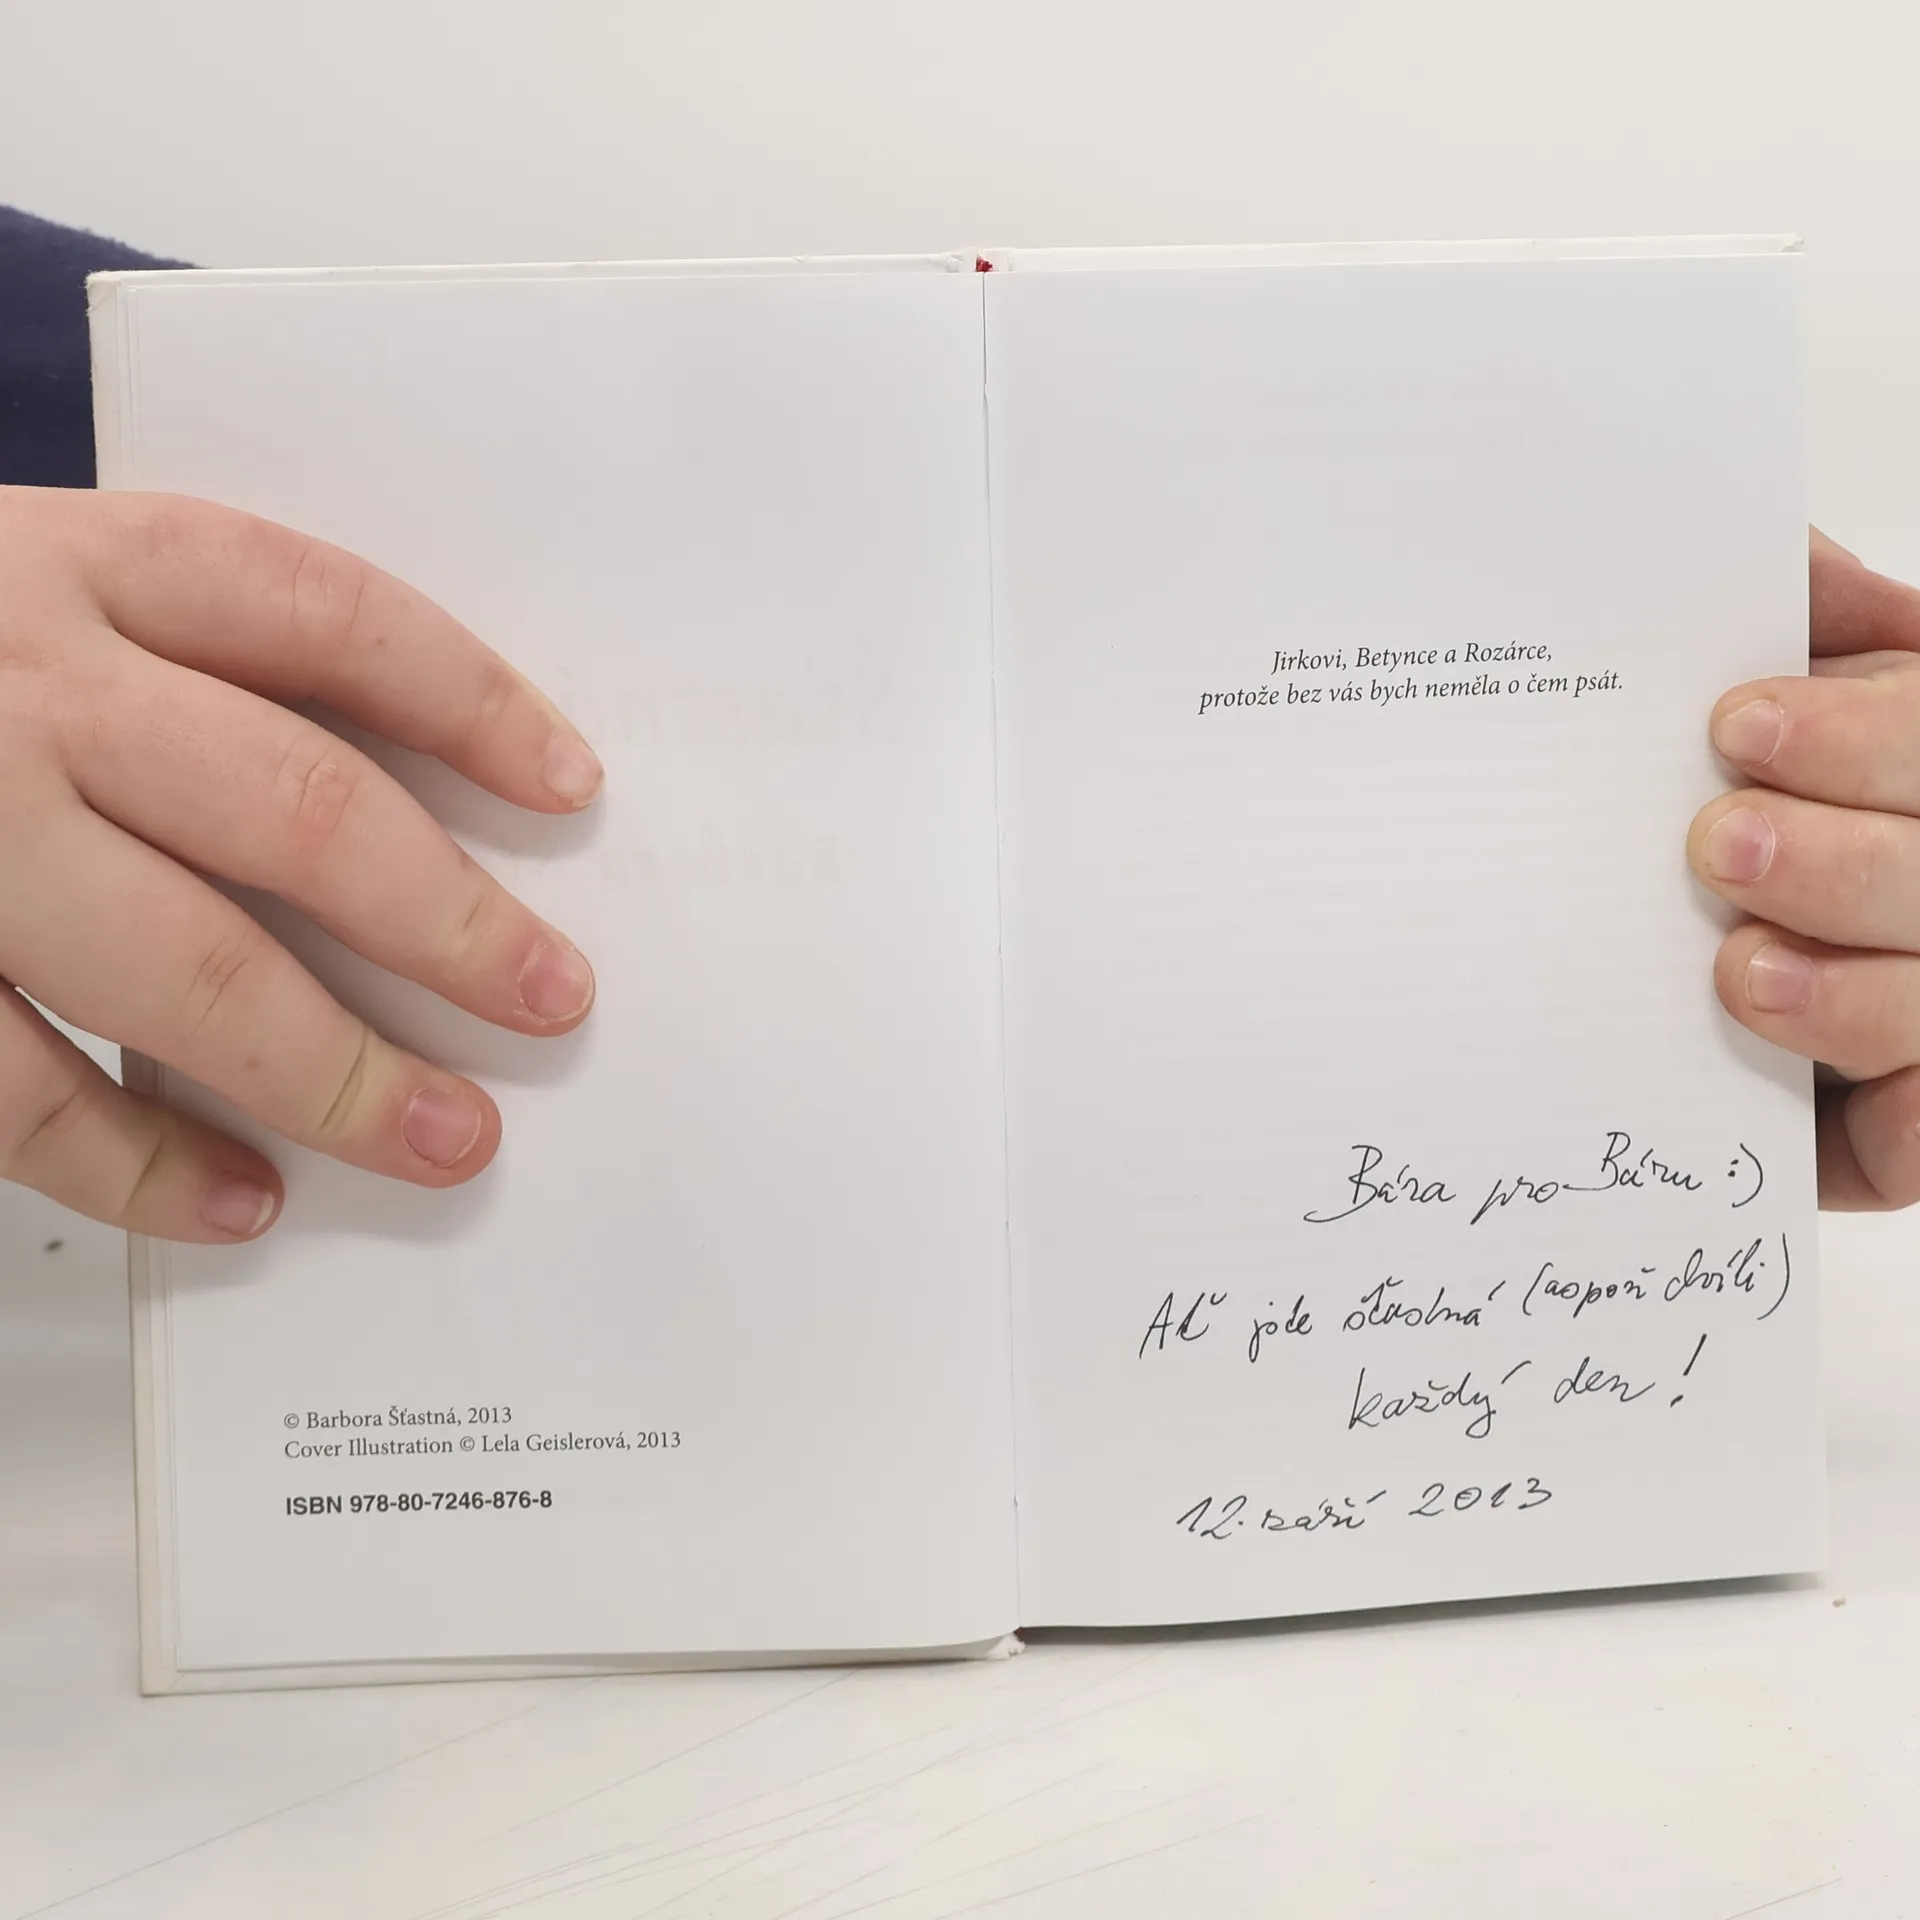 © Barbora Šťastná, 2013
Cover Illustration © Lela Geislerová, 2013
ISBN 978-80-7246-876-8
Jirkovi, Betynce a Rozárce,
protože bez vás bych neměla o čem psát.
Bára pro Báru :)
Ať jste šťastná (aspoň chvíli)
každý den!
12. září 2013